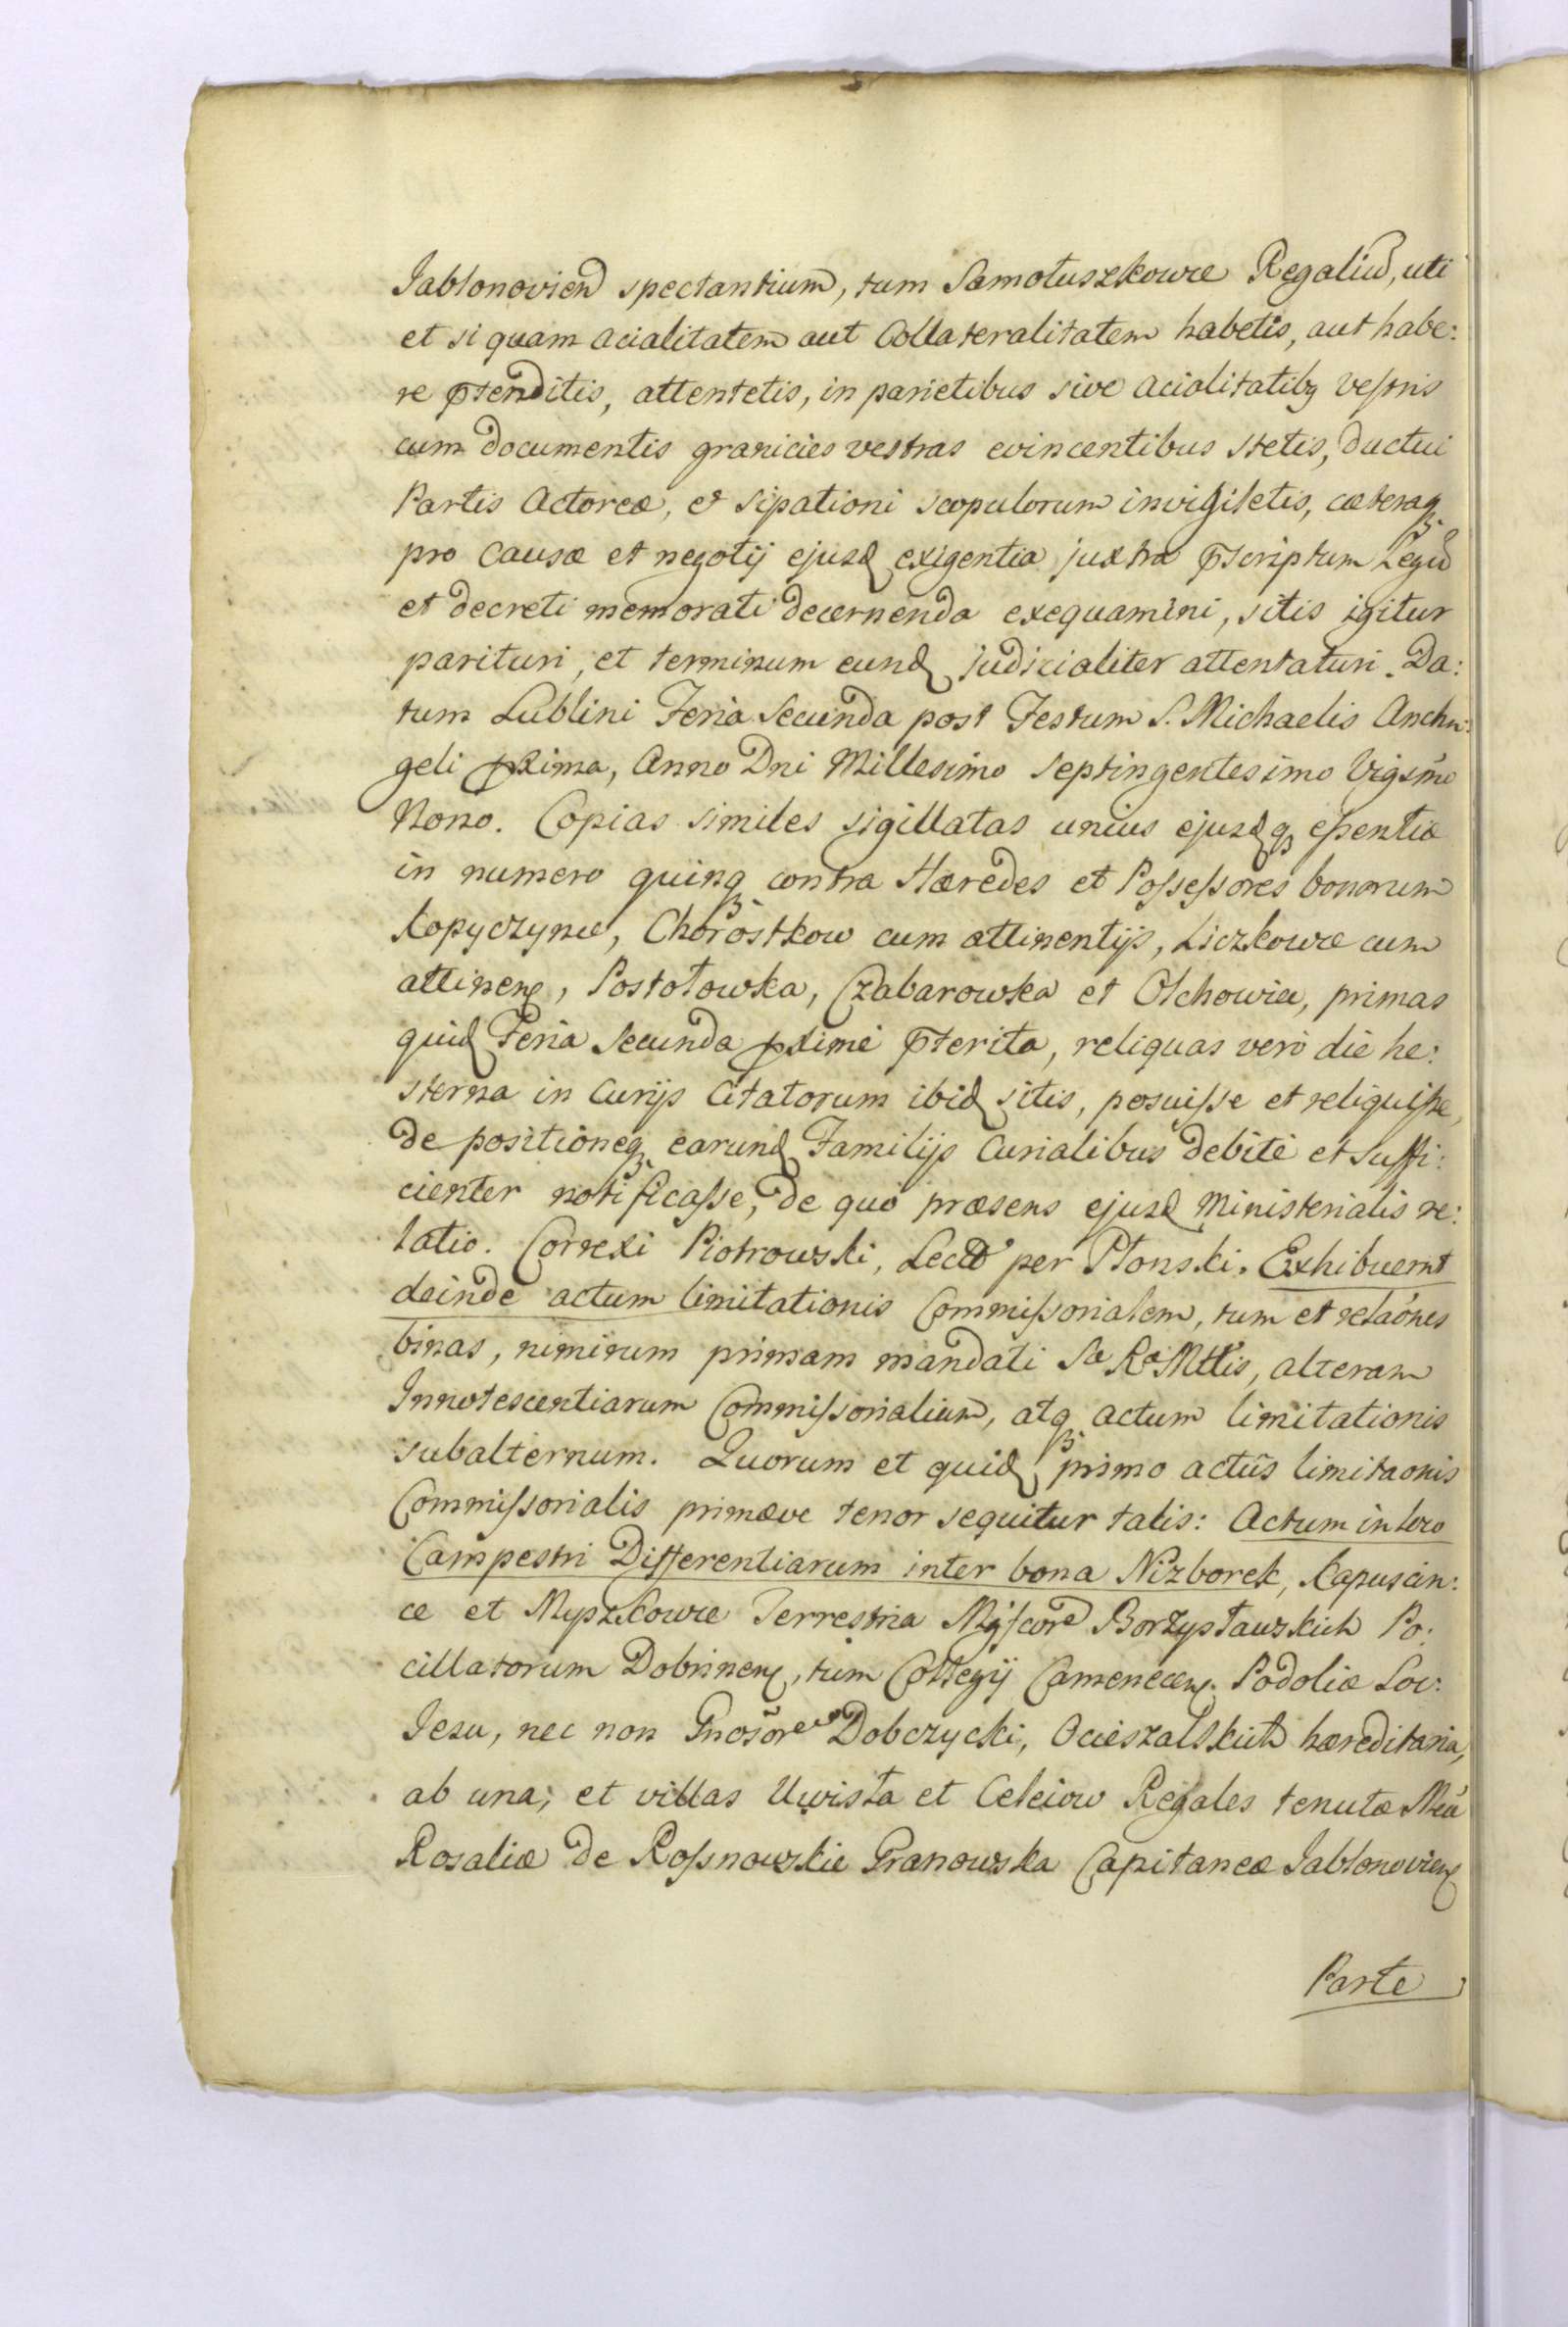 Jablonovien spectantium, tum Samołuszkowce Regaliu, uti
et si quam acialitatem aut Collateralitatem habetis, aut habe:
re ptenditis, attentetis, in parietibus sive acialitatibq vestris
cum documentis granicies vestras evincentibus stetis, ductui
Partis Actoreæ, et sipationi scopulorum invigiletis, cæteraq
pro Causæ et negotij ejusd exigentia juxta pscriptum Legu
et decreti memorati decernenda exequamini, sitis igitur
parituri, et terminum eund judicialiter attentaturi. Da:
tum Lublini Feria Secunda post Festum S. Michaelis Archn:
geli pxima, Anno Dni Millesimo Septingentesimo Vigsmo
Nono. Copias similes sigillatas unius ejusdq essentiæ
in numero quinq contra Hæredes et Possessores bonorum
Kopyczynce, Chorostkow cum attinentijs, Liczkowce cum
attinen, Postołowka, Czabarowka et Olchowice, primas
quid Feria Secunda pximè pterita, reliquas verò die he:
sterna in Curijs Citatorum ibid sitis, posuisse et reliquisse,
de positioneq earund Familijs Curialibus debitè et suffi:
cienter notificasse, de quo præsens ejusd Ministerialis re:
latio. Correxi Piotrowski, Lect per Płonski. Exhibuerunt
deinde actum limitationis Commissorialem, tum et relaões
binas, nimirum primam mandati Sæ Ræ Mttis, alteram
Innotescentiarum Commissorialium, atq actum limitationis
subalternum. Quorum et quid primo actûs limitaonis
Commissorialis primæve tenor sequitur talis: Actum in loco
Campestri Differentiarum inter bona Nizborek, Kapuscin:
ce et Myszkowce Terrestria Mgfcor Borzysławskich Po:
cillatorum Dobrinen, tum Collegij Camenecen. Podoliæ Soc:
Jesu, nec non Gnosore Dobczycki, Ocieszalskich hæreditaria,
ab una; et villas Uwisła et Celeiow Regales tenutæ Mcæ
Rosaliæ de Rossnowskie Granowska Capitaneæ Jablonovien
Parte